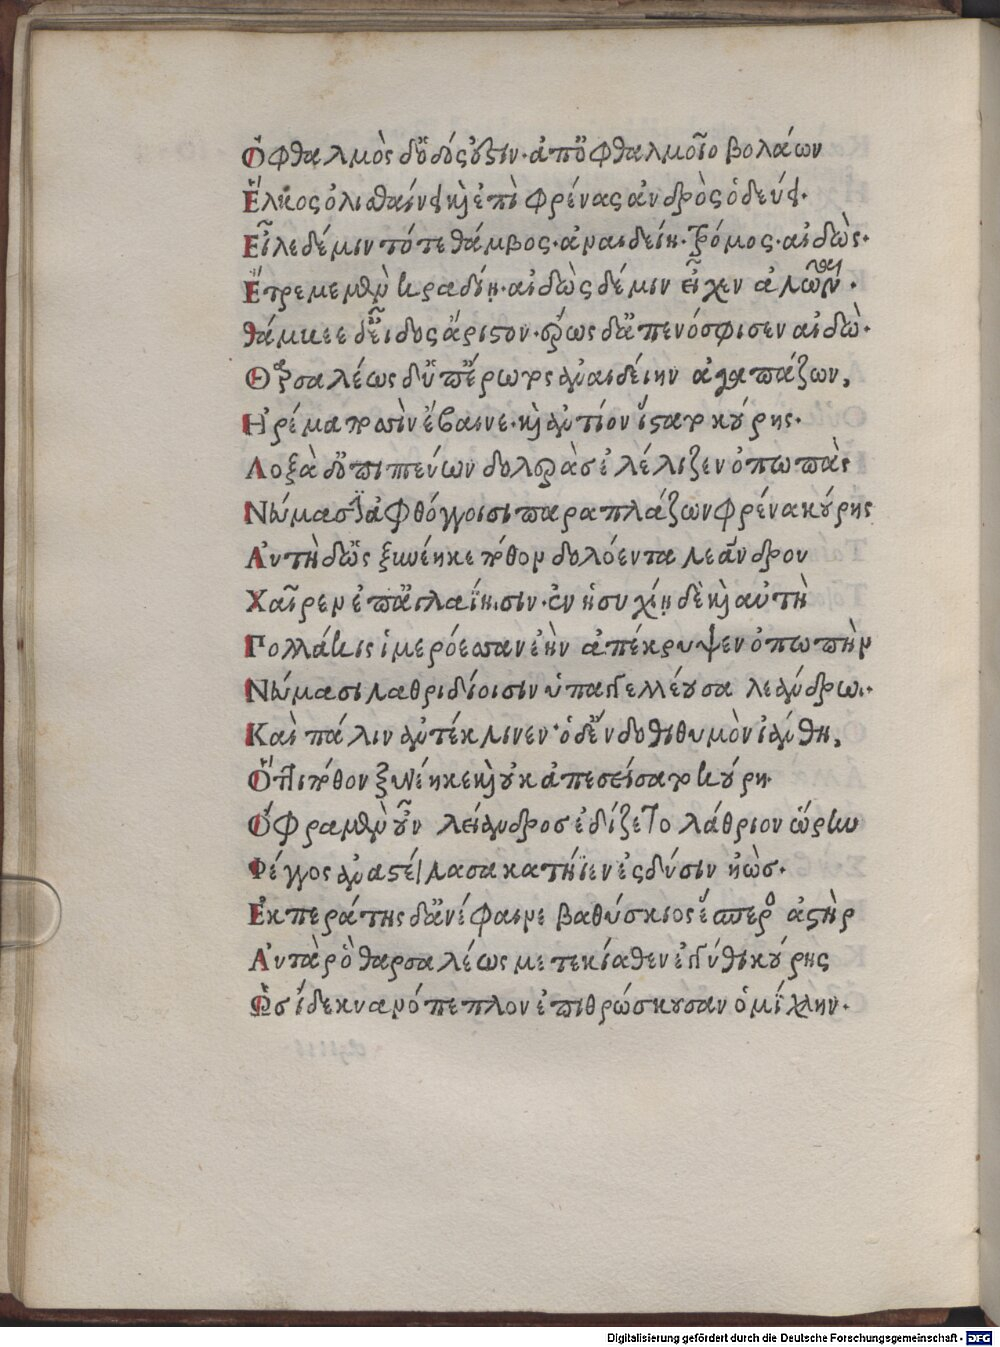 Ὀφθαλμὸς δ' ὁδός ἐστιν· ἀπ' ὀφθαλμοῖο βολάων
Ἕλκος ὀλισθαίνει καὶ ἐπὶ φρένας ἀνδρὸς ὁδεύει·
Εἷλε δέ μιν τότε θάμβος· ἀναιδείη· τρόμος· αἰδώς·
Ἔτρεμε μὲν κραδίη· αἰδὼς δέ μιν εἶχεν ἁλῶναι·
Θάμβεε δ' εἶδος ἄριστον· ἔρως δ' ἀπενόσφισεν αἰδῶ·
Θαρσαλέως δ' ὑπ' ἔρωτος ἀναιδείην ἀγαπάζων,
Ἠρέμα ποσὶν ἔβαινε· καὶ ἀντίον ἵστατο κούρης·
Λοξὰ δ' ὀπιπτεύων δολερὰς ἐλέλιζεν ὀπωπάς
Νεύμασιν ἀφθόγγοισι παραπλάζων φρένα κούρης
Αὐτὴ δ' ὡς ξυνέηκε πόθον δολόεντα λεάνδρου
Χαῖρεν ἐπ' ἀγλαΐῃσιν· ἐν ἡσυχίῃ δὲ καὶ αὐτὴ
Πολλάκις ἱμερόεσσαν ἑὴν ἀπέκρυψεν ὀπωπὴν
Νεύμασι λαθριδίοισιν ὑπαγγέλλουσα λεάνδρῳ·
Καὶ πάλιν ἀντέκλινεν· ὁ δ' ἔνδοθι θυμὸν ἰάνθη,
Ὅττι πόθον ξυνέηκε καὶ οὐκ ἀπεσείσατο κούρη·
Ὄφρα μὲν οὖν λείανδρος ἐδίζετο λάθριον ὥρην
Φέγγος ἀναστείλασα κατήϊεν ἐς δύσιν ἠώς·
Ἐκ περάτης δ' ἀνέφαινε βαθύσκιος ἕσπερος ἀστὴρ
Αὐτὰρ ὁ θαρσαλέως μετεκίαθεν ἐγγύθι κούρης
Ὡς ἴδε κυανόπεπλον ἐπιθρώσκουσαν ὀμίχλην·
Digitalisierung gefördert durch die Deutsche Forschungsgemeinschaft - DFG